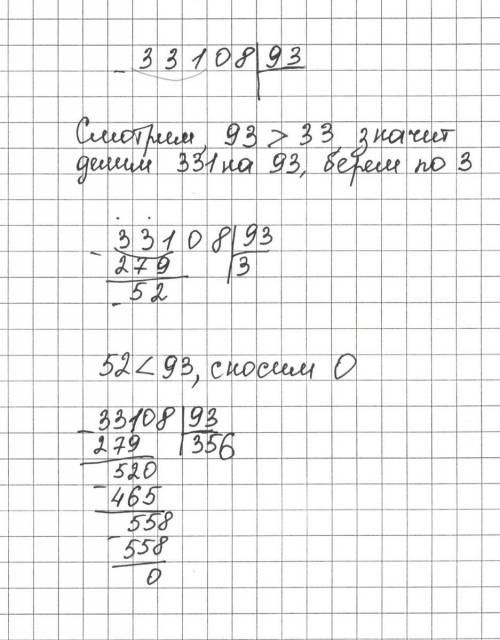 - 33108 | 93
Смотрим, 93 > 33, значит
делим 331 на 93, берем по 3
- 33108 | 93
279 | 3
- 52
52 < 93, сносим 0
- 33108 | 93
279 | 356
520
- 465
- 558
558
0